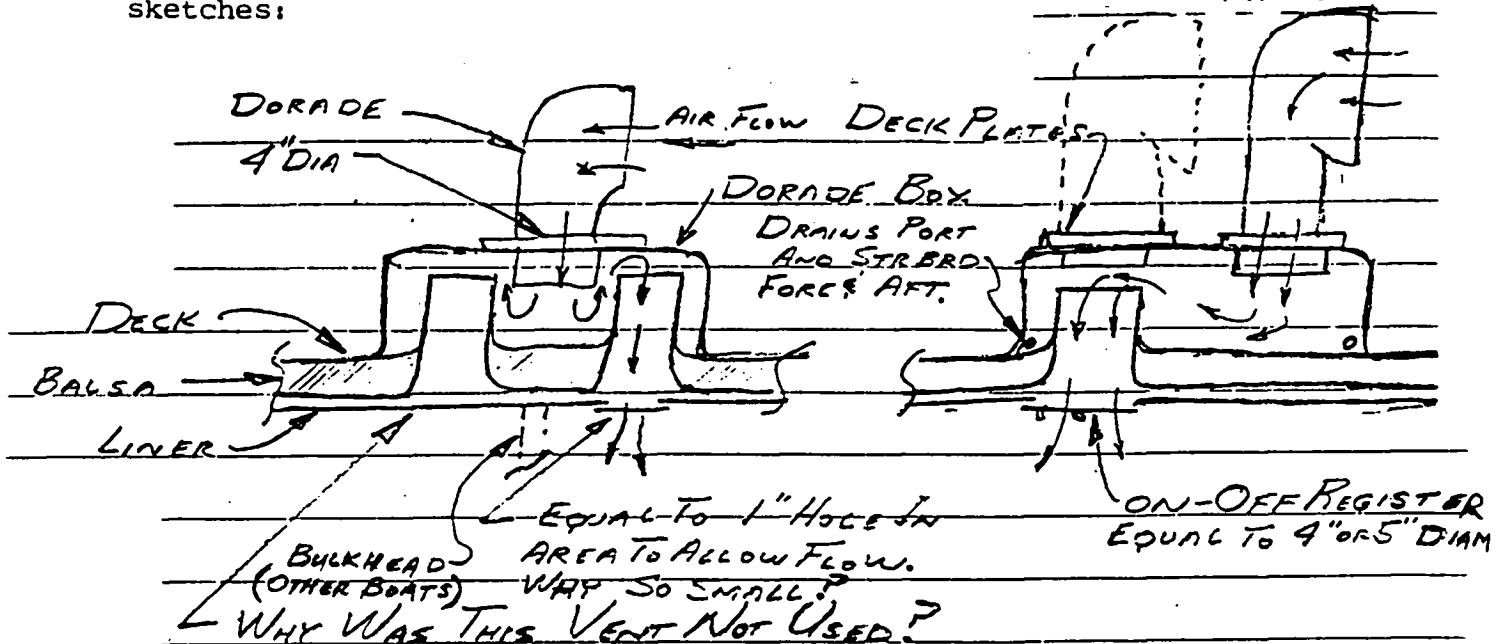 sketches:
DORADE
4" DIA
AIR FLOW
DECK PLATES
DORADE BOX.
DRAINS PORT
AND STRBRD
FORE & AFT.
DECK
BALSA
LINER
BULKHEAD
(OTHER BOATS)
EQUAL TO 1" HOLE IN
AREA TO ALLOW FLOW.
WHY SO SMALL?
WHY WAS THIS VENT NOT USED?
ON-OFF REGISTER
EQUAL TO 4" OR 5" DIAM